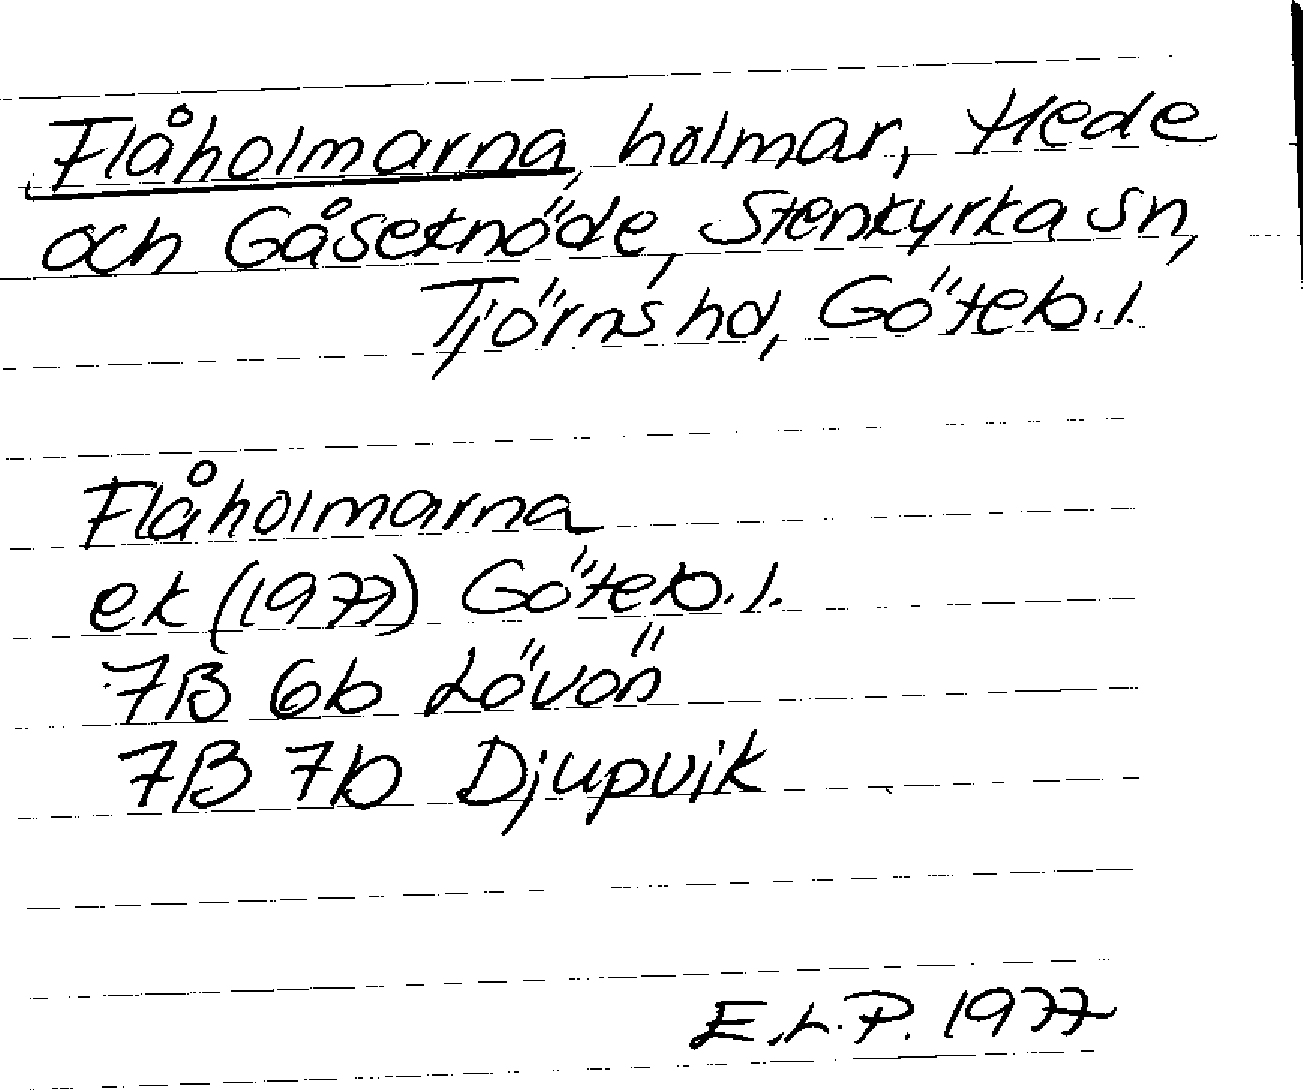 Flåholmarna, holmar, Hede
och Gåseknöde, Stenkyrka sn,
Tjörns hd, Göteb.l.
Flåholmarna
ek (1977) Göteb.l.
7B 6b Lövön
7B 7b Djupvik
E.L.P. 1977